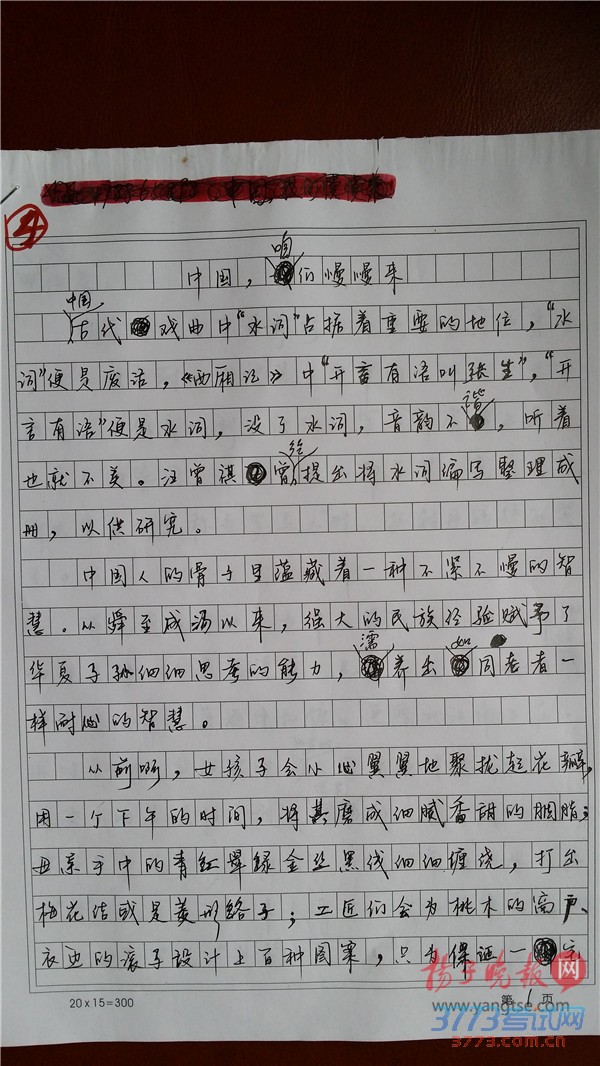 4
中国，咱们慢慢来
中国古代戏曲中“水词”占据着重要的地位，“水
词”便是废话，《西厢记》中“开言有语叫张生”，“开
言有语”便是水词，没了水词，音韵不谐，听着
也就不美。汪曾祺曾经提出将水词编写整理成
册，以供研究。
中国人的骨子里蕴藏着一种不紧不慢的智
慧。从舜至成汤以来，强大的民族经验赋予了
华夏子孙细细思考的能力，濡养出如同老者一
样耐心的智慧。
从前啊，女孩子会小心翼翼地聚拢起花瓣，
用一个下午的时间，将其磨成细腻香甜的胭脂；
母亲手中的青红翠绿金丝黑线细细缠绕，打出
梅花结或是菱形络子；工匠们会为桃木的窗户、
衣边的滚子设计上百种图案，只为保证一
20×15=300
第 1 页
扬子晚报网
www.yangtse.com
3773考试网
3773.com.cn